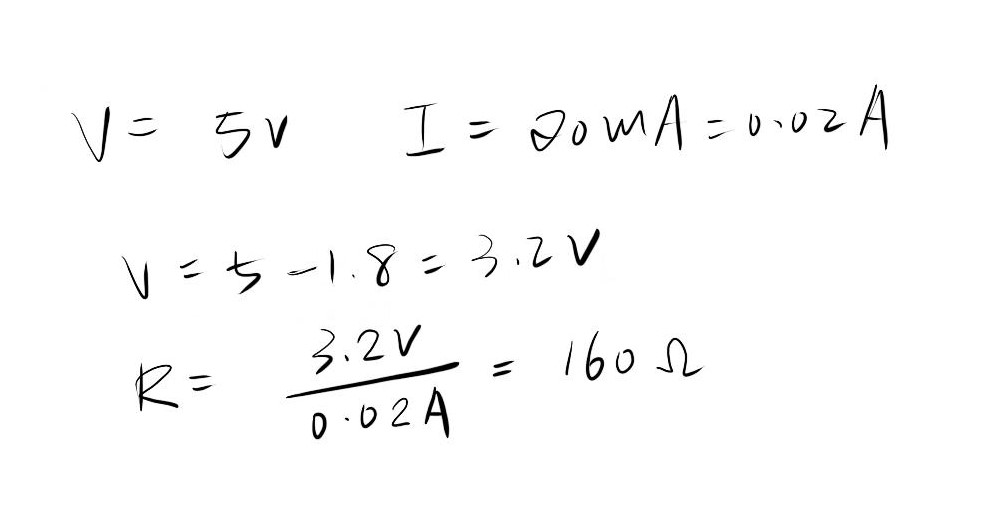 V = 5V I = 20mA = 0.02A
V = 5 - 1.8 = 3.2V
R = 3.2V / 0.02A = 160 Ω